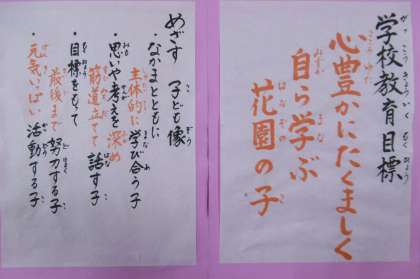 学校教育目標
心豊かにたくましく
自ら学ぶ
花園の子
めざす 子ども像
・なかまとともに
主体的に学び合う子
・思いや考えを深め
筋道立てて話す子
・目標をもって
最後まで努力する子
・元気いっぱい活動する子